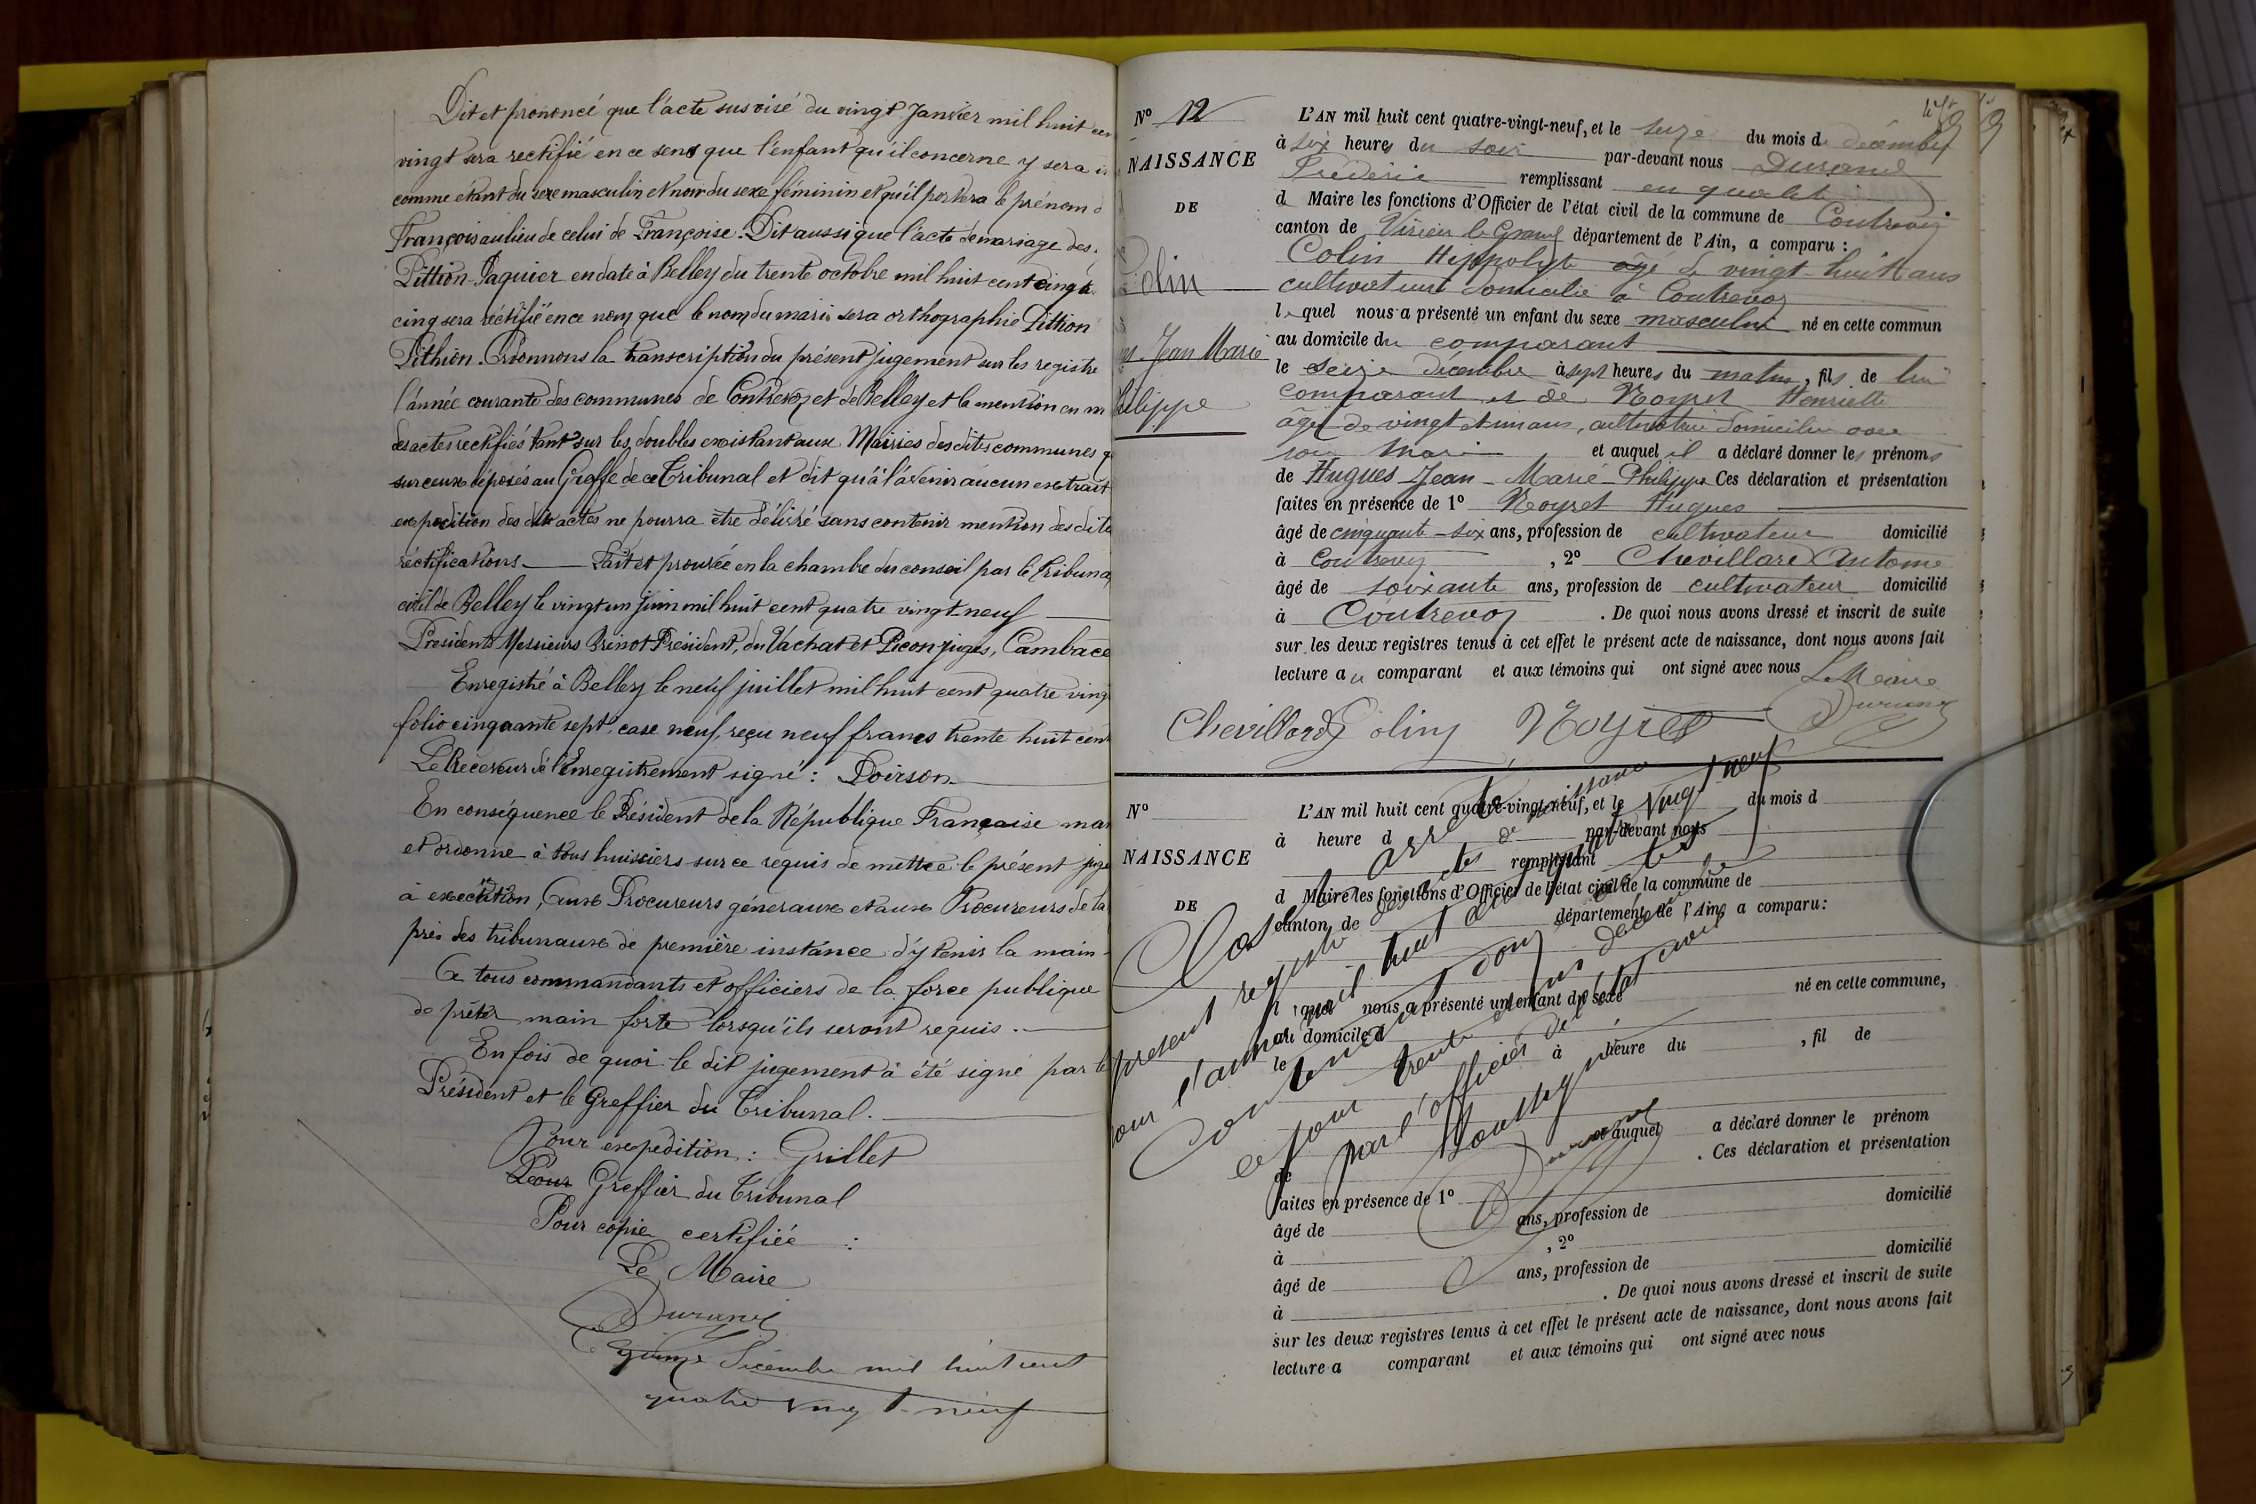 Dit et prononcé que l'acte susvisé du vingt Janvier mil huit cen
vingt sera rectifié en ce sens que l'enfant qu'il concerne y sera
comme étant du sexe masculin et non du sexe féminin et qu'il portera le prénom d
François au lieu de celui de Françoise. Dit aussi que l'acte de mariage des
Pittion Paquier en date à Belley du trente octobre mil huit cent cinqte
cinq sera réctifié en ce nom que le nom du mari sera orthographie Pittion
Pithion. Ordonnons la transcription du présent jugement sur les registre
l'année courante des communes de Contrevoz et de Belley et la mention en m
des actes rectifiés tant sur les doubles existant aux Mairies des dites communes q
sur ceux déposés au Greffe de ce Tribunal et dit qu'à l'avenir aucun extrait
expédition des dits actes ne pourra être délivré sans contenir mention des dite
réctifications. Fait et prouvée en la chambre du conseil par le Tribuna
civil de Belley le vingt un juin mil huit cent quatre vingt neuf
Présidents Messieurs Président, du Vachat et Picon juges, Cambacé
Enregistré à Belley le neuf juillet mil huit cent quatre ving
folio cinquante sept, case neuf, reçu neuf francs trente huit cent
Le Receveur de l'Enregistrement signé : Poirson
En conséquence le Président de la République Française man
et ordonne à tous huissiers sur ce requis de mettre le présent juge
à exécution, Aux Procureurs géneraux et aux Procureurs de la
près des tribunaux de première instance d'y tenir la main
A tous commandants et officiers de la force publique
de prêter main forte lorsqu'ils seront requis.
En fois de quoi le dit jugement à été signé par le
Président et le Greffier du Tribunal.
Pour éxpedition : Grillet
Pour Greffier du Tribunal
Pour copie certifiée :
Le Maire
Durand
quinze Décembre mil huit cent
quatre vingt neuf
Nº 12
NAISSANCE
DE
Colin
Jean Marie
hilippe
L'AN mil huit cent quatre-vingt-neuf, et le seize du mois d décembre
à six heures du soir par-devant nous Durand
Frédéric remplissant en qualité
d Maire les fonctions d'Officier de l'état civil de la commune de Contrevoz
canton de Virieu le Grand département de l'Ain, a comparu :
Colin Hyppolyte agé de vingt-huit ans
cultivateur domicilié à Contrevoz
lequel nous a présenté un enfant du sexe masculin né en cette commun
au domicile du comparant
le seize décembre à sept heures du matin, fils de lui
comparant et de Noyret Henriette
âgée de vingt et un ans, cultivatrice domiciliée avec
son mari et auquel il a déclaré donner les prénoms
de Hugues Jean-Marie-Philippe Ces déclaration et présentation
faites en présence de 1º Noyret Hugues
âgé de cinquante-six ans, profession de cultivateur domicilié
à Contrevoz, 2º Chevillard Antoine
âgé de soixante ans, profession de cultivateur domicilié
à Contrevoz. De quoi nous avons dressé et inscrit de suite
sur les deux registres tenus à cet effet le présent acte de naissance, dont nous avons fait
lecture au comparant et aux témoins qui ont signé avec nous Le Maire
Chevillard Colin Noyret Durand
Nº
NAISSANCE
DE
L'AN mil huit cent quatre-vingt-neuf, et le du mois d
à heure d par-devant nous
remplissant
d Maire les fonctions d'Officier de l'état civil de la commune de
canton de département de l'Ain, a comparu :
l quel nous a présenté un enfant du sexe né en cette commune,
au domicile d
le à heure du , fil de
et auquel a déclaré donner le prénom
de . Ces déclaration et présentation
faites en présence de 1º
âgé de ans, profession de domicilié
à , 2º
âgé de ans, profession de domicilié
à . De quoi nous avons dressé et inscrit de suite
sur les deux registres tenus à cet effet le présent acte de naissance, dont nous avons fait
lecture a comparant et aux témoins qui ont signé avec nous
Clos et arrêté le
présent registre des actes de naissance
pour l'année mil huit cent quatre vingt neuf
Contenant douze actes
ce jour trente et un décembre
par l'officier de l'état civil
Soussigné
Durand